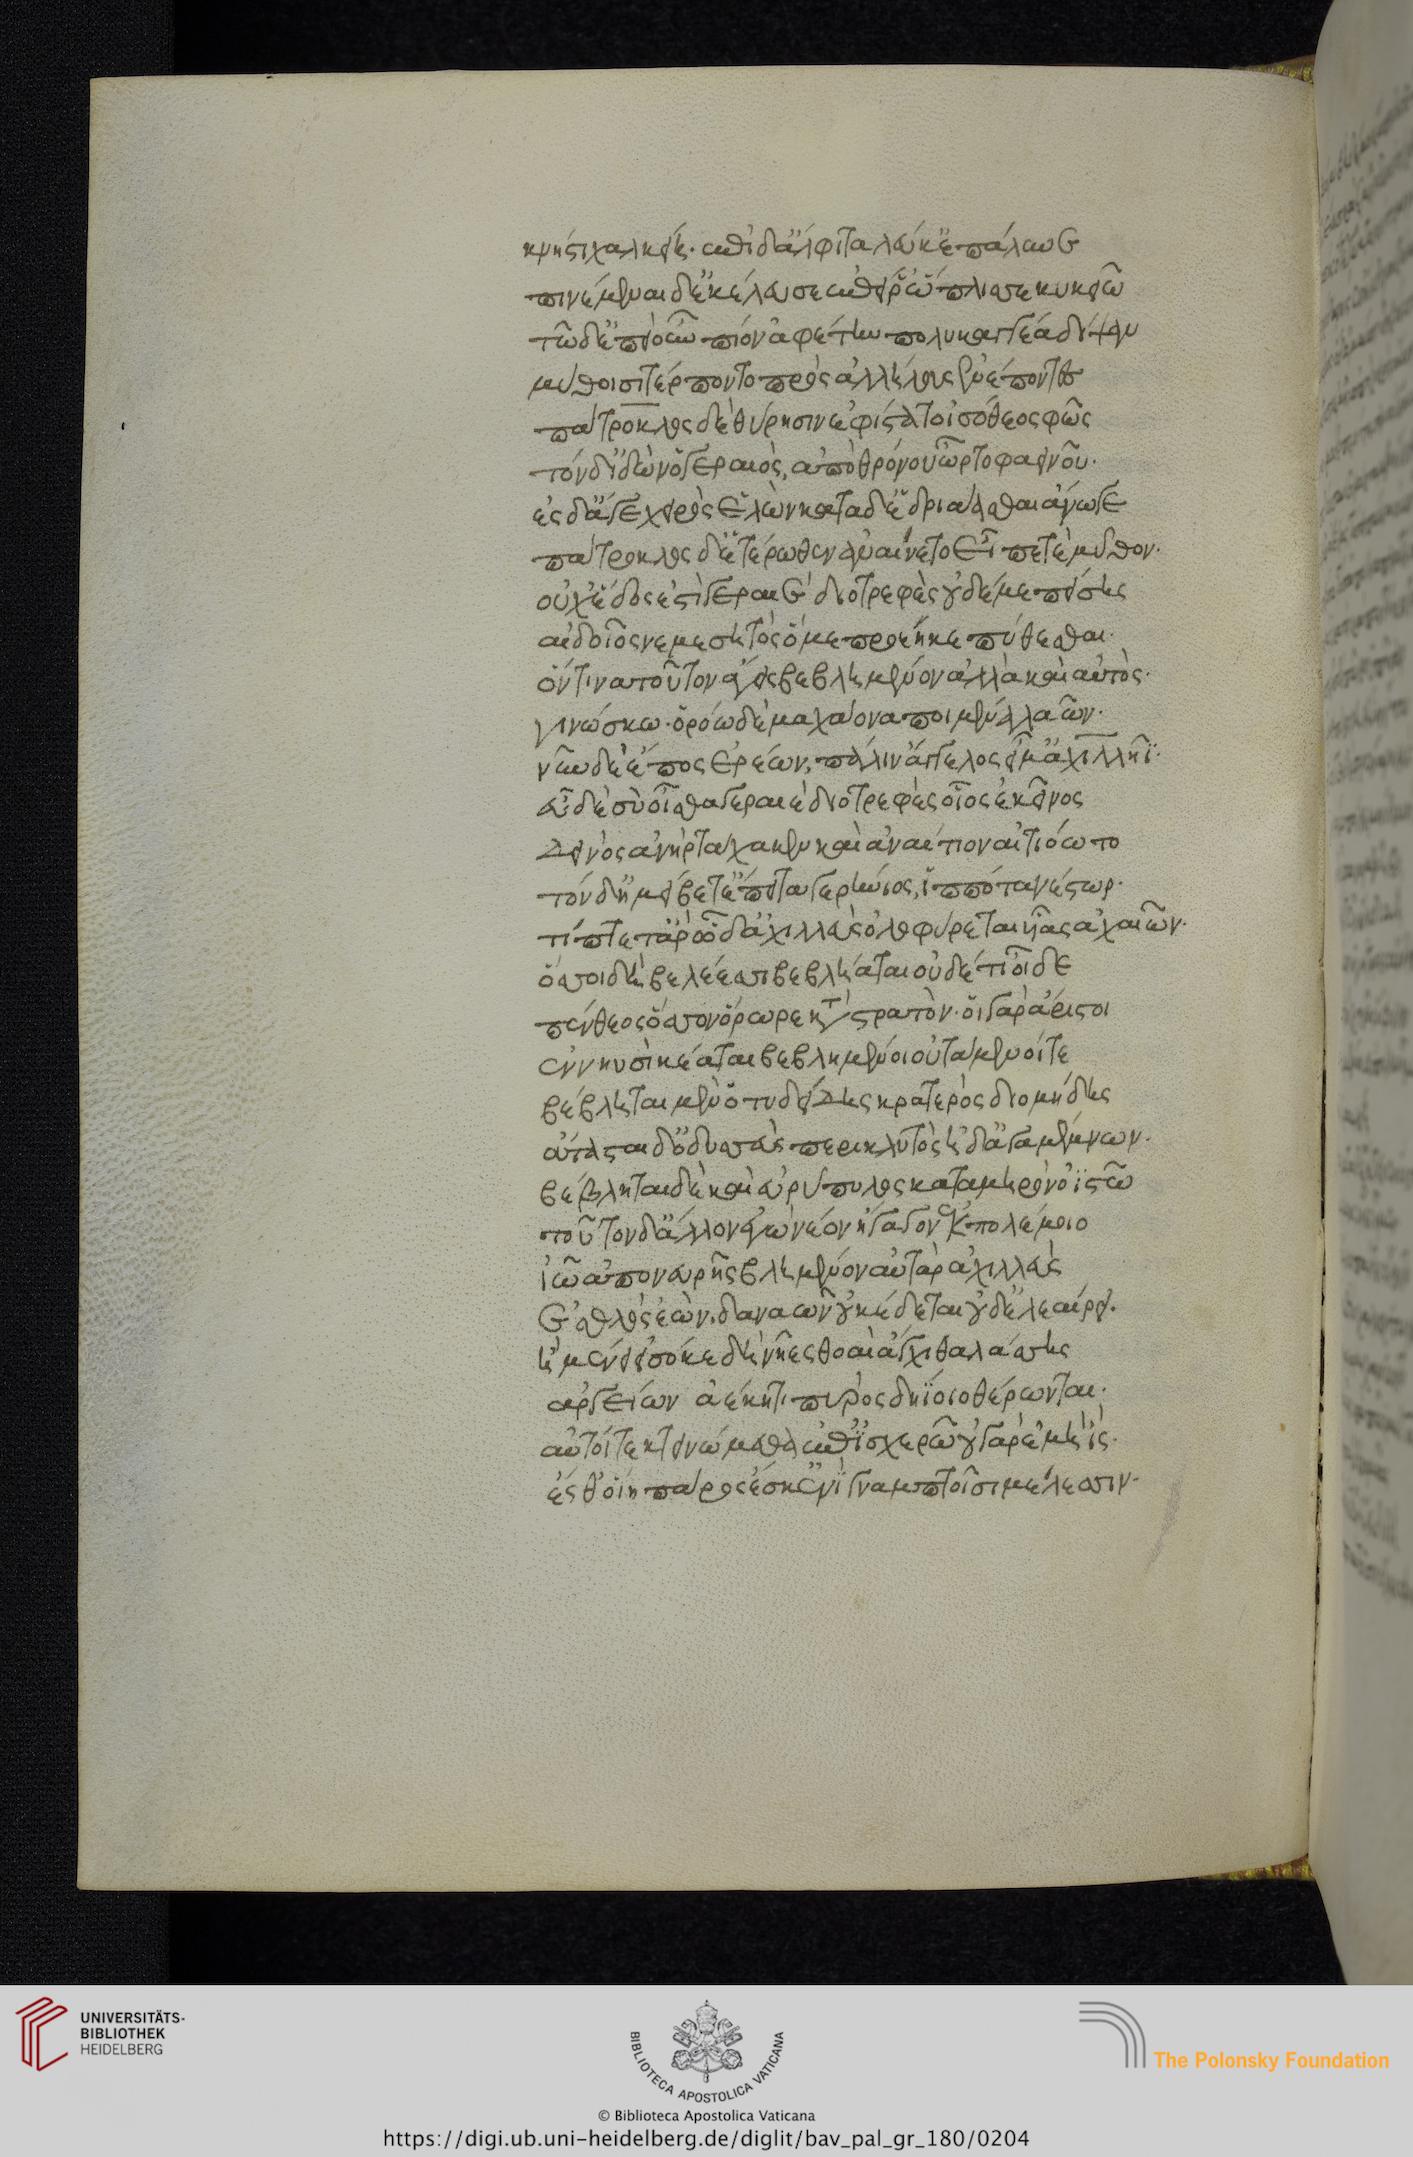 κνήστι χαλκείῃ· ἐπὶ δ' ἄλφιτα λευκὰ πάλυνε
πινέμεναι δ' ἐκέλευσεν ἐπεί ῥ' ὥπλισσε κυκειῶ
τὼ δ' ἐπεὶ οὖν πίοντ' ἀφέτην πολυκαγκέα δίψαν
μύθοισι τέρποντο πρὸς ἀλλήλους ἐνέποντες
πάτροκλος δὲ θύρησιν ἐφίστατο ἰσόθεος φῶς
τὸν δὲ ἰδὼν ὁ γεραιὸς, ἀπὸ θρόνου ὦρτο φαεινοῦ·
ἐς δ' ἄγε χειρὸς ἑλὼν κατὰ δ' ἑδριάασθαι ἄνωγε
πάτροκλος δ' ἑτέρωθεν ἀναίνετο εἶπέ τε μῦθον·
οὐχ ἕδος ἐστὶ γεραιὲ διοτρεφὲς οὐδέ με πείσεις
αἰδοῖος νεμεσητὸς ὅ με προέηκε πύθεσθαι·
ὅντινα τοῦτον ἄγεις βεβλημένον ἀλλὰ καὶ αὐτὸς·
γινώσκω· ὁρόω δὲ μαχάονα ποιμένα λαῶν·
νῦν δὲ ἔπος ἐρέων, πάλιν ἄγγελος εἶμ' ἀχιλλῆϊ·
εὖ δὲ σὺ οἶσθα γεραιὲ διοτρεφὲς οἷος ἐκεῖνος
δεινὸς ἀνὴρ τάχα κεν καὶ ἀναίτιον αἰτιόωτο
τὸν δ' ἠμείβετ' ἔπειτα γερήνιος, ἱππότα νέστωρ·
τίπτε τ' ἄρ' ὧδ' ἀχιλλεὺς ὀλοφύρεται υἷας ἀχαιῶν·
ὅσσοι δὴ βελέεσσι βεβλήαται οὐδέ τι οἶδε
πένθεος ὅσσον ὄρωρε κατὰ στρατὸν· οἱ γὰρ ἄριστοι
ἐν νηυσὶ κέαται βεβλημένοι οὐτάμενοί τε
βέβληται μὲν ὁ τυδείδης κρατερὸς διομήδης
οὔτασται δ' ὀδυσσεὺς περικλυτὸς ἠδ' ἀγαμέμνων·
βέβληται δὲ καὶ εὐρύπυλος κατὰ μηρὸν ὀϊστῶ
τοῦτον δ' ἄλλον ἐγὼ νέον ἤγαγον ἐκ πολέμοιο
ἰῶ ἀπὸ νευρῆς βλήμενον αὐτὰρ ἀχιλλεὺς
ἐσθλὸς ἐὼν, δαναῶν οὐ κήδεται οὐδ' ἐλεαίρει·
ἦ μένει εἰσόκε δὴ νῆες θοαὶ ἄγχι θαλάσσης
ἀργείων ἀέκητι πυρὸς δηΐοιο θέρωνται·
αὐτοί τε κτεινώμεθα ἐπισχερώ οὐ γὰρ ἐμὴ ἲς·
ἔσθ' οἵη πάρος ἔσκεν ἐνὶ γναμπτοῖσι μέλεσσιν·
UNIVERSITÄTS-
BIBLIOTHEK
HEIDELBERG
BIBLIOTECA APOSTOLICA VATICANA
The Polonsky Foundation
© Biblioteca Apostolica Vaticana
https://digi.ub.uni-heidelberg.de/diglit/bav_pal_gr_180/0204